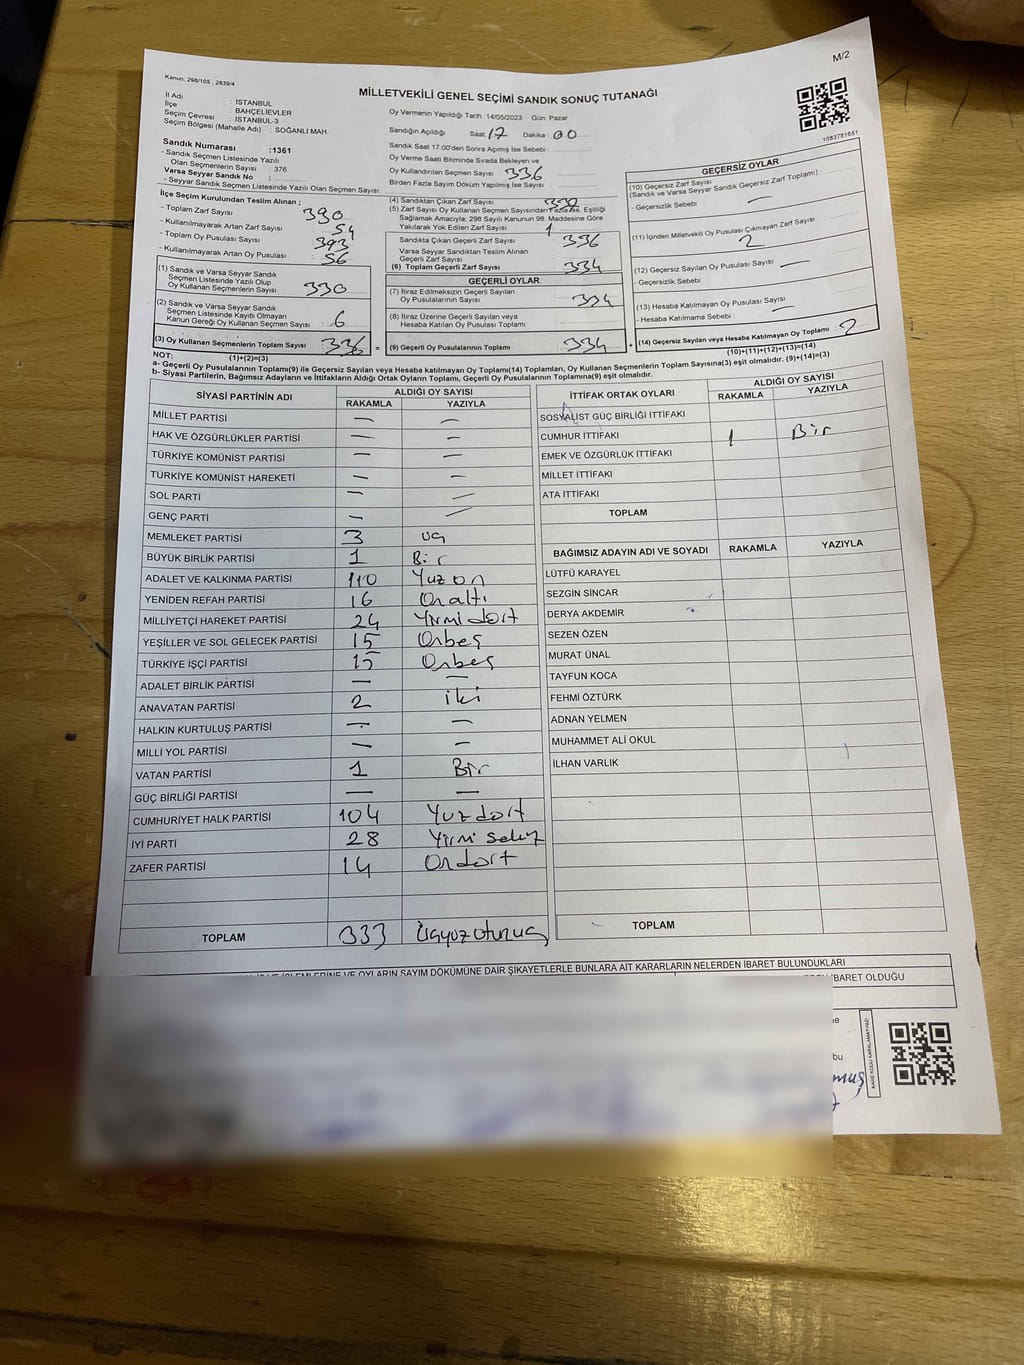 Kanun: 298/105 , 2839/4
M/2
MİLLETVEKİLİ GENEL SEÇİMİ SANDIK SONUÇ TUTANAĞI
İl Adı : İSTANBUL
İlçe : BAHÇELİEVLER
Seçim Çevresi : İSTANBUL-3
Seçim Bölgesi (Mahalle Adı) : SOĞANLI MAH.
Sandık Numarası :1361
- Sandık Seçmen Listesinde Yazılı
Olan Seçmenlerin Sayısı : 376
Varsa Seyyar Sandık No :
- Seyyar Sandık Seçmen Listesinde Yazılı Olan Seçmen Sayısı:
İlçe Seçim Kurulundan Teslim Alınan ;
- Toplam Zarf Sayısı 390
- Kullanılmayarak Artan Zarf Sayısı 54
- Toplam Oy Pusulası Sayısı 393
- Kullanılmayarak Artan Oy Pusulası 56
(1) Sandık ve Varsa Seyyar Sandık
Seçmen Listesinde Yazılı Olup
Oy Kullanan Seçmenlerin Sayısı 330
(2) Sandık ve Varsa Seyyar Sandık
Seçmen Listesinde Kayıtlı Olmayan
Kanun Gereği Oy Kullanan Seçmen Sayısı 6
(3) Oy Kullanan Seçmenlerin Toplam Sayısı 336 =
(1)+(2)=(3)
Oy Vermenin Yapıldığı Tarih :14/05/2023 Gün: Pazar
Sandığın Açıldığı Saat 17 Dakika 00
Sandık Saat 17.00'den Sonra Açımış İse Sebebi :
Oy Verme Saati Bitiminde Sırada Bekleyen ve
Oy Kullandırılan Seçmen Sayısı 336
Birden Fazla Sayım Döküm Yapılmış İse Sayısı :
(4) Sandıktan Çıkan Zarf Sayısı
(5) Zarf Sayısı Oy Kullanan Seçmen Sayısından Fazla İse, Eşitliği
Sağlamak Amacıyla; 298 Sayılı Kanunun 98. Maddesine Göre
Yakılarak Yok Edilen Zarf Sayısı 1
Sandıkta Çıkan Geçerli Zarf Sayısı 336
Varsa Seyyar Sandıktan Teslim Alınan
Geçerli Zarf Sayısı
(6) Toplam Geçerli Zarf Sayısı 334
GEÇERLİ OYLAR
(7) İtiraz Edilmeksizin Geçerli Sayılan
Oy Pusulalarının Sayısı 334
(8) İtiraz Üzerine Geçerli Sayılan veya
Hesaba Katılan Oy Pusulası Toplamı
(9) Geçerli Oy Pusulalarının Toplamı 334 +
1083781651
GEÇERSİZ OYLAR
(10) Geçersiz Zarf Sayısı
(Sandık ve Varsa Seyyar Sandık Geçersiz Zarf Toplamı) :
- Geçersizlik Sebebi —
(11) İçinden Milletvekili Oy Pusulası Çıkmayan Zarf Sayısı :
2
(12) Geçersiz Sayılan Oy Pusulası Sayısı —
- Geçersizlik Sebebi
(13) Hesaba Katılmayan Oy Pusulası Sayısı —
- Hesaba Katılmama Sebebi :
(14) Geçersiz Sayılan veya Hesaba Katılmayan Oy Toplamı 2
(10)+(11)+(12)+(13)=(14)
NOT:
a- Geçerli Oy Pusulaları Toplamı(9) ile Geçersiz Sayılan veya Hesaba katılmayan Oy Toplamı(14) Toplamları, Oy Kullanan Seçmenlerin Toplam Sayısına(3) eşit olmalıdır. (9)+(14)=(3)
b- Siyasi Partilerin, Bağımsız Adayların ve İttifakların Aldığı Ortak Oyların Toplamı, Geçerli Oy Pusulalarının Toplamına(9) eşit olmalıdır.
SİYASİ PARTİNİN ADI ALDIĞI OY SAYISI
RAKAMLA YAZIYLA
MİLLET PARTİSİ — —
HAK VE ÖZGÜRLÜKLER PARTİSİ — —
TÜRKİYE KOMÜNİST PARTİSİ — —
TÜRKİYE KOMÜNİST HAREKETİ — —
SOL PARTİ — —
GENÇ PARTİ — —
MEMLEKET PARTİSİ 3 üç
BÜYÜK BİRLİK PARTİSİ 1 Bir
ADALET VE KALKINMA PARTİSİ 110 Yuz on
YENİDEN REFAH PARTİSİ 16 On altı
MİLLİYETÇİ HAREKET PARTİSİ 24 Yirmi dört
YEŞİLLER VE SOL GELECEK PARTİSİ 15 Onbeş
TÜRKİYE İŞÇİ PARTİSİ 15 Onbeş
ADALET BİRLİK PARTİSİ — —
ANAVATAN PARTİSİ 2 iki
HALKIN KURTULUŞ PARTİSİ — —
MİLLİ YOL PARTİSİ — —
VATAN PARTİSİ 1 Bir
GÜÇ BİRLİĞİ PARTİSİ — —
CUMHURİYET HALK PARTİSİ 104 Yuzdort
İYİ PARTİ 28 Yirmi sekiz
ZAFER PARTİSİ 14 Ondort
TOPLAM 333 Üçyüz otuzuç
İTTİFAK ORTAK OYLARI ALDIĞI OY SAYISI
RAKAMLA YAZIYLA
SOSYALİST GÜÇ BİRLİĞİ İTTİFAKI
CUMHUR İTTİFAKI 1 Bir
EMEK VE ÖZGÜRLÜK İTTİFAKI
MİLLET İTTİFAKI
ATA İTTİFAKI
TOPLAM
BAĞIMSIZ ADAYIN ADI VE SOYADI RAKAMLA YAZIYLA
LÜTFÜ KARAYEL
SEZGİN SİNCAR
DERYA AKDEMİR
SEZEN ÖZEN
MURAT ÜNAL
TAYFUN KOCA
FEHMİ ÖZTÜRK
ADNAN YELMEN
MUHAMMET ALİ OKUL
İLHAN VARLIK
TOPLAM
İŞLEMLERİNE VE OYLARIN SAYIM DÖKÜMÜNE DAİR ŞİKAYETLERLE BUNLARA AİT KARARLARIN NELERDEN İBARET BULUNDUKLARI
İBARET OLDUĞU
bu
muş